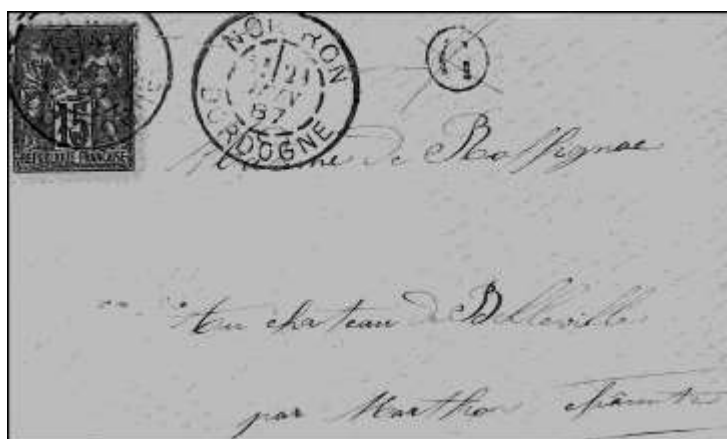 15
REPUBLIQUE FRANÇAISE
NONTRON
21
JUIN
87
DORDOGNE
Madame de Roffignac
Au chateau de Belleville
par Marthon Charente